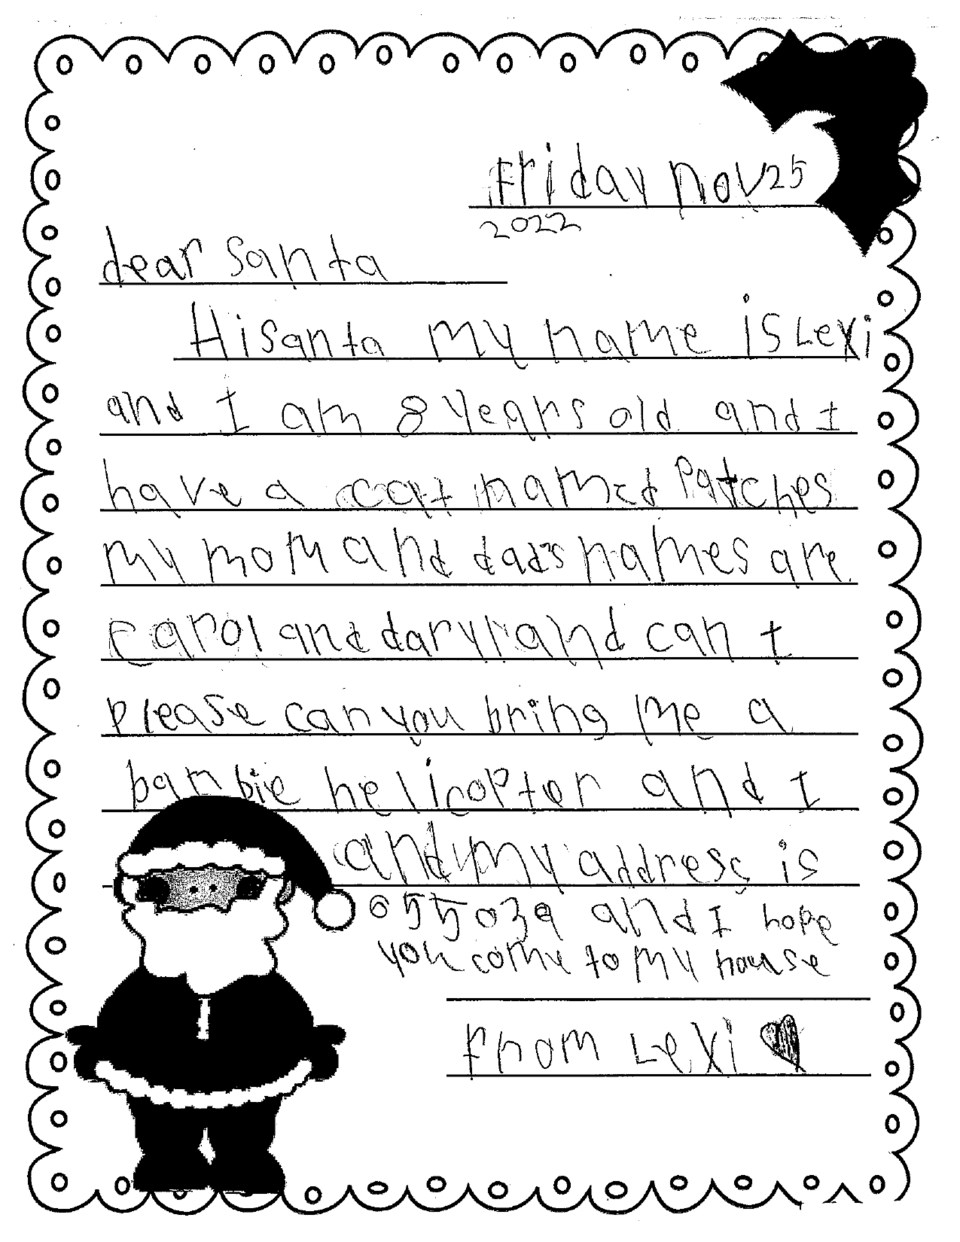 Friday nov 25
2022
dear Santa
Hi Santa my name is Lexi
and I am 8 years old and I
have a cat named Patches
my mom and dad's names are
carol and daryl and can I
please can you bring me a
barbie helicoptor and I
and my address is
655039 and I hope
you come to my house
From Lexi